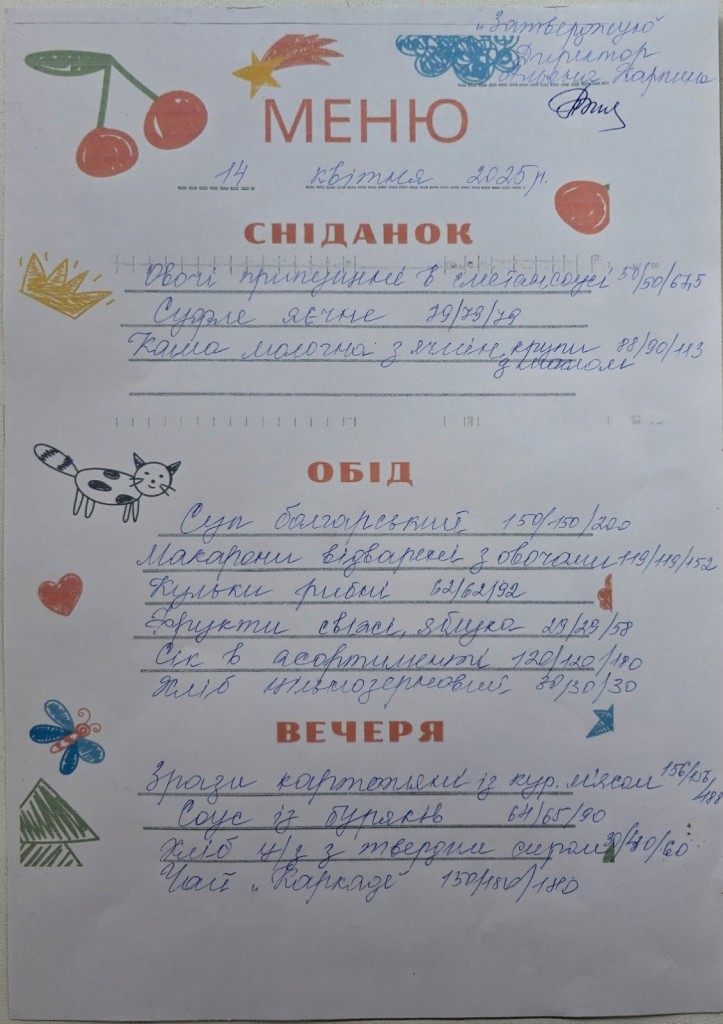 „Затверджую"
Директор
Карпина
МЕНЮ
14 квітня 2025 р.
СНІДАНОК
Овочі припущені в сметан. соусі 50/50/67,5
Суфле яєчне 79/79/79
Каша молочна з ячмін. крупи 88/90/113
з маслом
ОБІД
Суп болгарський 150/150/200
Макарони відварені з овочами 119/119/152
Кульки рибні 62/62/92
Фрукти свіжі, яблука 29/29/58
Сік в асортименті 120/120/180
Хліб цільнозерновий 30/30/30
ВЕЧЕРЯ
Зрази картопляні із кур. м'ясом 156/156/188
Соус із буряків 64/65/90
Хліб ц/з з твердим сиром /60
Чай „Каркаде" 150/180/180